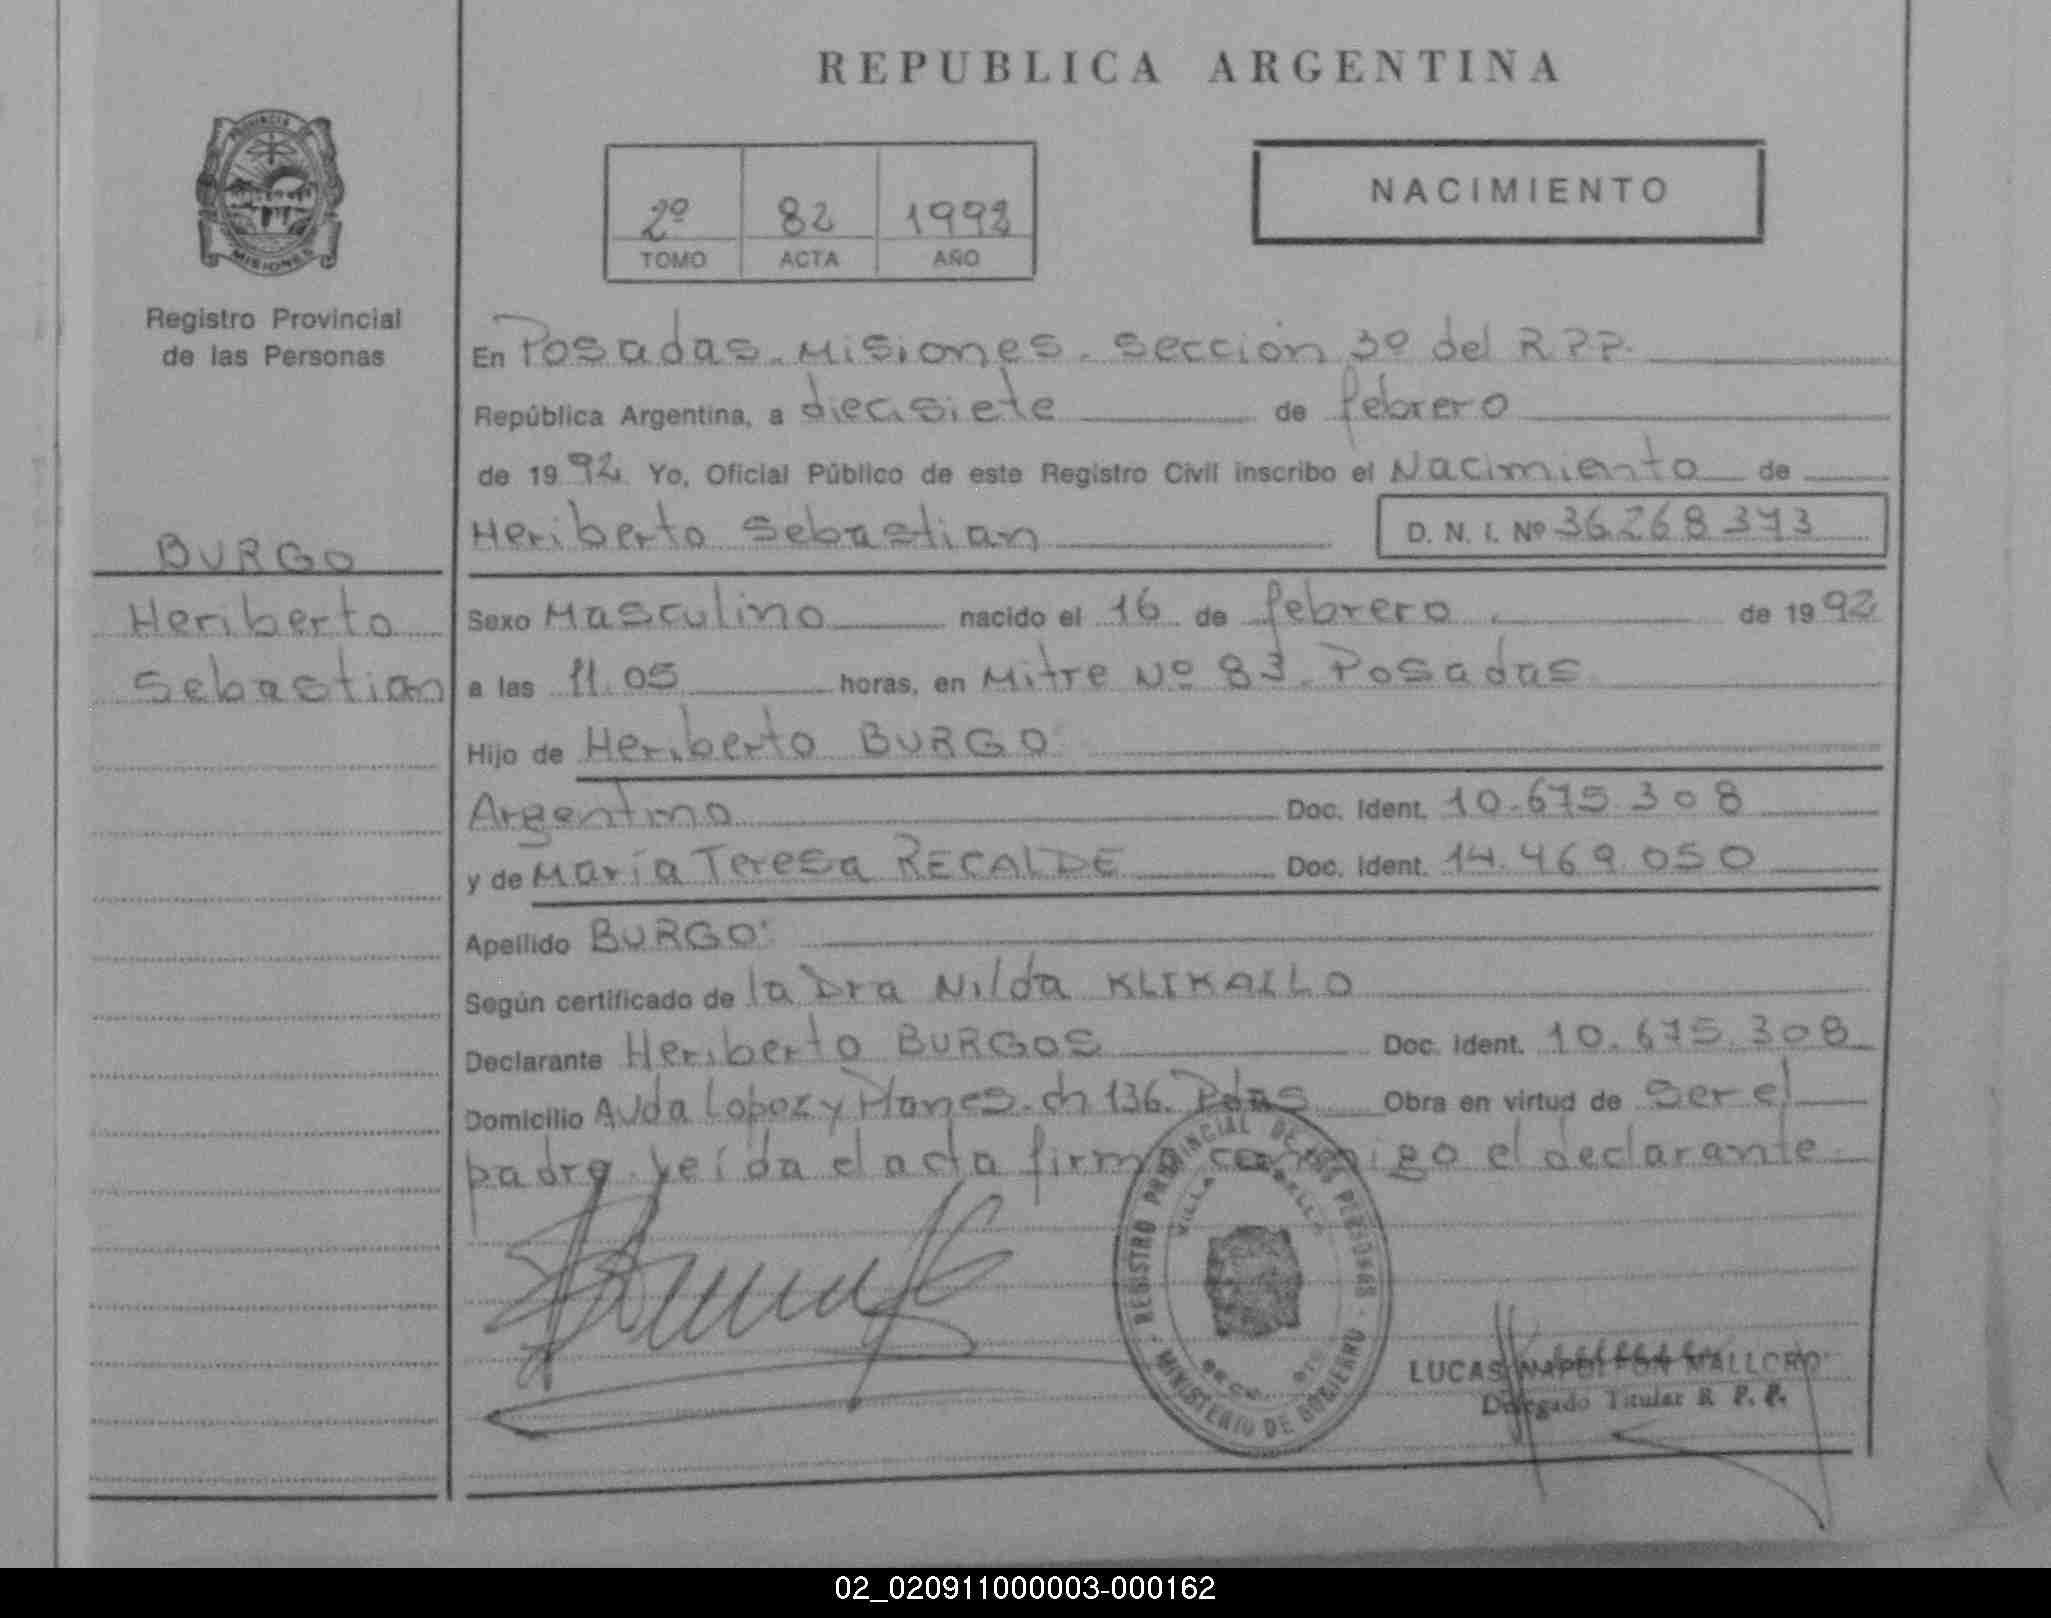 REPUBLICA ARGENTINA
PROVINCIA DE
MISIONES
2º 82 1992
TOMO ACTA AÑO
NACIMIENTO
Registro Provincial
de las Personas
BURGO
Heriberto
Sebastian
En Posadas. Misiones. Sección 3º del R.P.P.
República Argentina, a diecisiete de febrero
de 1992 Yo, Oficial Público de este Registro Civil inscribo el Nacimiento de
Heriberto Sebastian D. N. I. Nº 36.268.373
Sexo Masculino nacido el 16 de febrero de 1992
a las 11.05 horas, en Mitre Nº 83. Posadas
Hijo de Heriberto BURGO
Argentino Doc. Ident. 10.675.308
y de María Teresa RECALDE Doc. Ident. 14.469.050
Apellido BURGO
Según certificado de la Dra Nilda KLIKAILO
Declarante Heriberto BURGOS Doc. Ident. 10.675.308
Domicilio Avda Lopez y Planes. ch 136. Pdas Obra en virtud de ser el
padre. Leída el acta firma conmigo el declarante
REGISTRO PROVINCIAL DE LAS PERSONAS
VILLA
MINISTERIO DE GOBIERNO
LUCAS NAPOLEON MALLORQ
Delegado Titular R. P. P.
02_020911000003-000162